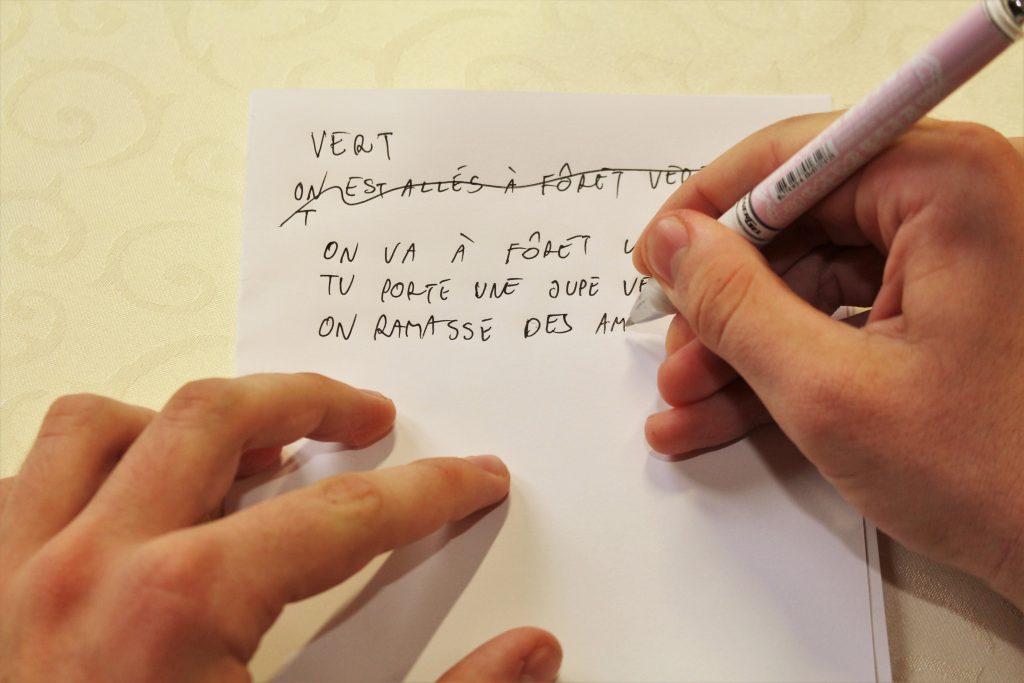 VERT
ON EST ALLÉS À FÔRET
T
ON VA À FÔRET
TU PORTE UNE JUPE
ON RAMASSE DES